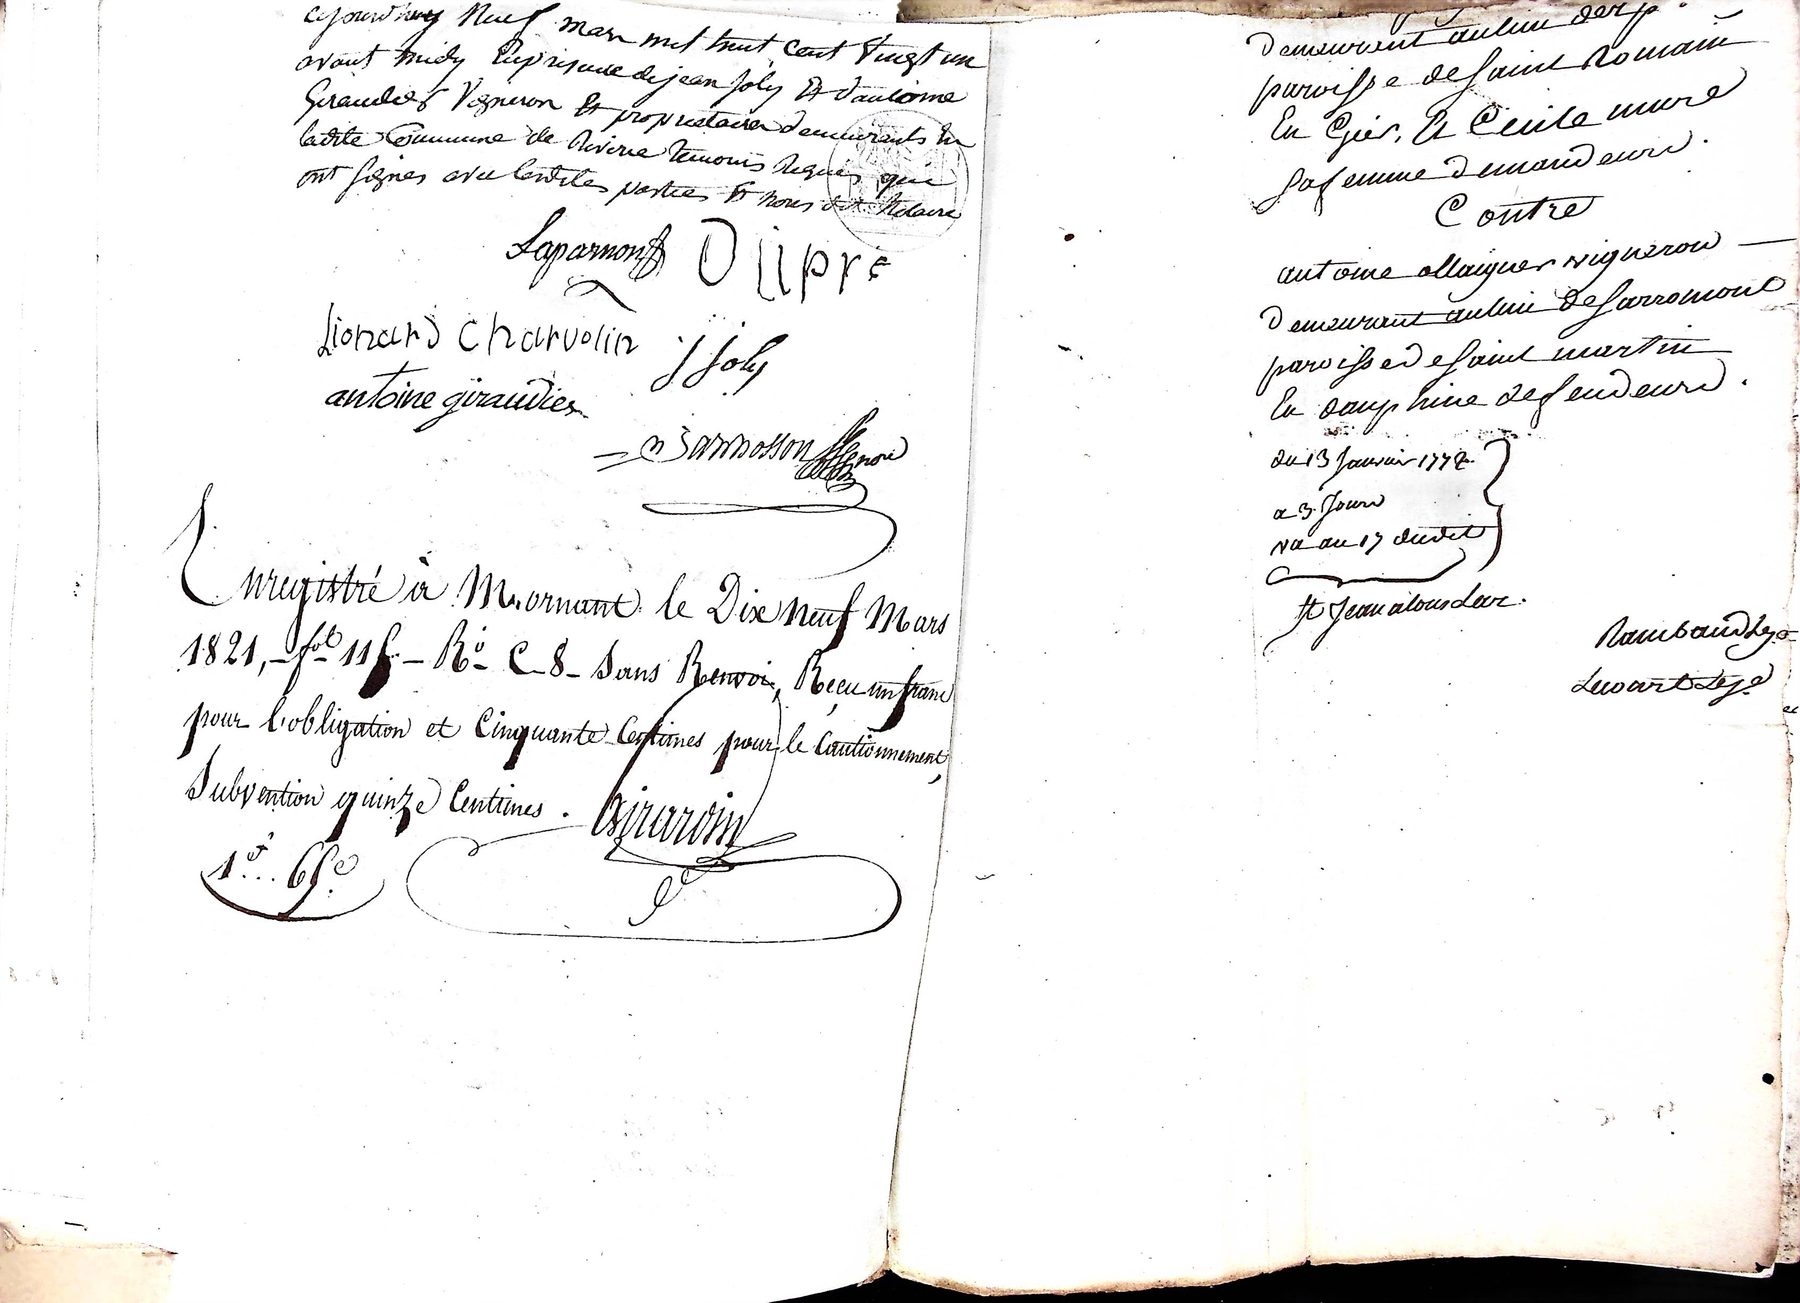 cejourdhuy Neuf mars mil huit cent vingt un
avant midy En présence de jean joly Et d'antoine
Giraudier Vigneron Et propriétaires demeurants En
ladite Commune de Riverie temoins Requis qui
ont signés avec lesdites parties Et nous dit Notaire
Dupré
Lionard Charvolin
j joly
antoine giraudier
Enregistré à Mornant le Dix neuf Mars
1821, fol 11 Ro C 8 Sans Renvoi, Reçu un franc
pour l'obligation et Cinquante Centimes pour le Cautionnement,
Subvention quinze Centimes. Girardin
1f.. 65c
demeurant au lieu
paroisse de Saint Romain
En Gier, Et Cecile mure
Sa femme demandeurs.
Contre
antoine allaigner vigneron
demeurant au lieu de Garromont
paroisse de Saint martin
En dauphine defendeurs.
du 13 Janvier 1772
a 3 Jours
va au 17 dudit